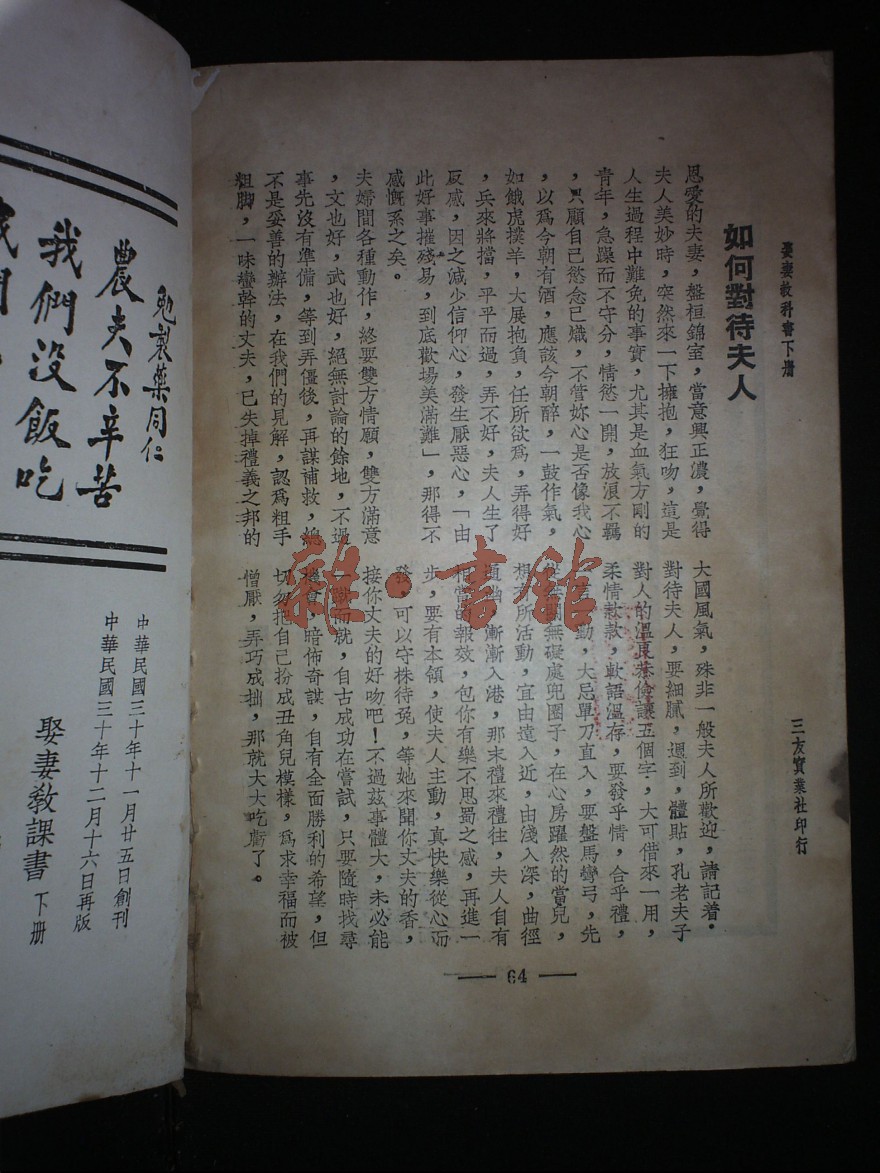 娶妻教科書下册
三友實業社印行
如何對待夫人
恩愛的夫妻，盤桓錦室，當意興正濃，覺得
夫人美妙時，突然來一下擁抱，狂吻，這是
人生過程中難免的事實，尤其是血氣方剛的
青年，急躁而不守分，情慾一開，放浪不羈
，只顧自己慾念已熾，不管妳心是否像我心
，以爲今朝有酒，應該今朝醉，一鼓作氣，
如餓虎撲羊，大展抱負，任所欲爲，弄得好
，兵來將擋，平平而過，弄不好，夫人生了
反感，因之減少信仰心，發生厭惡心，「由
此好事摧殘易，到底歡場美滿難」，那得不
感慨系之矣。
夫婦間各種動作，終要雙方情願，雙方滿意
，文也好，武也好，絕無討論的餘地，不過
事先沒有準備，等到弄僵後，再謀補救，總
不是妥善的辦法，在我們的見解，認爲粗手
粗脚，一味蠻幹的丈夫，已失掉禮義之邦的
大國風氣，殊非一般夫人所歡迎，請記着。
對待夫人，要細膩，週到，體貼，孔老夫子
對人的溫良恭儉讓五個字，大可借來一用，
柔情款款，軟語溫存，要發乎情，合乎禮，
動，大忌單刀直入，要盤馬彎弓，先
無礙處兜圈子，在心房躍然的當兒，
想有所活動，宜由遠入近，由淺入深，曲徑
通幽，漸漸入港，那末禮來禮往，夫人自有
相當的報效，包你有樂不思蜀之感，再進一
步，要有本領，使夫人主動，真快樂從心而
發，可以守株待兔，等她來聞你丈夫的香，
接你丈夫的好吻吧！不過茲事體大，未必能
一蹴而就，自古成功在嘗試，只要隨時找尋
機會，暗佈奇謀，自有全面勝利的希望，但
切勿把自己扮成丑角兒模樣，爲求幸福而被
憎厭，弄巧成拙，那就大大吃虧了。
64
勉製藥同仁
農夫不辛苦
我們沒飯吃
我們
中華民國三十年十一月廿五日創刊
中華民國三十年十二月十六日再版
娶妻教課書 下册
雜·書館